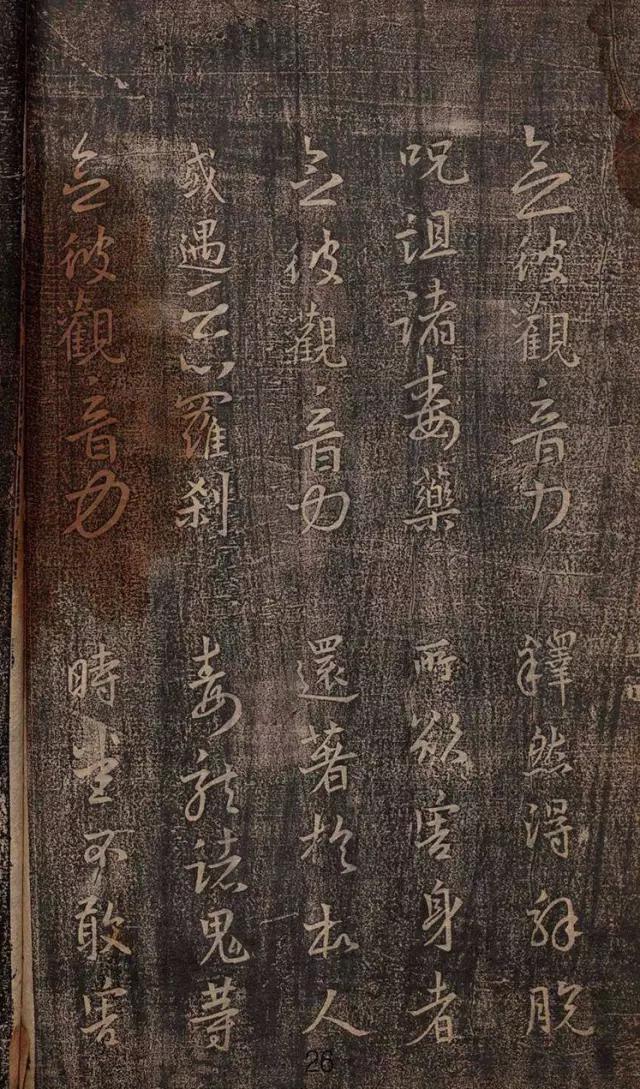 念彼觀音力 釋然得解脫
呪詛諸毒藥 所欲害身者
念彼觀音力 還著於本人
或遇惡羅刹 毒龍諸鬼等
念彼觀音力 時悉不敢害
26